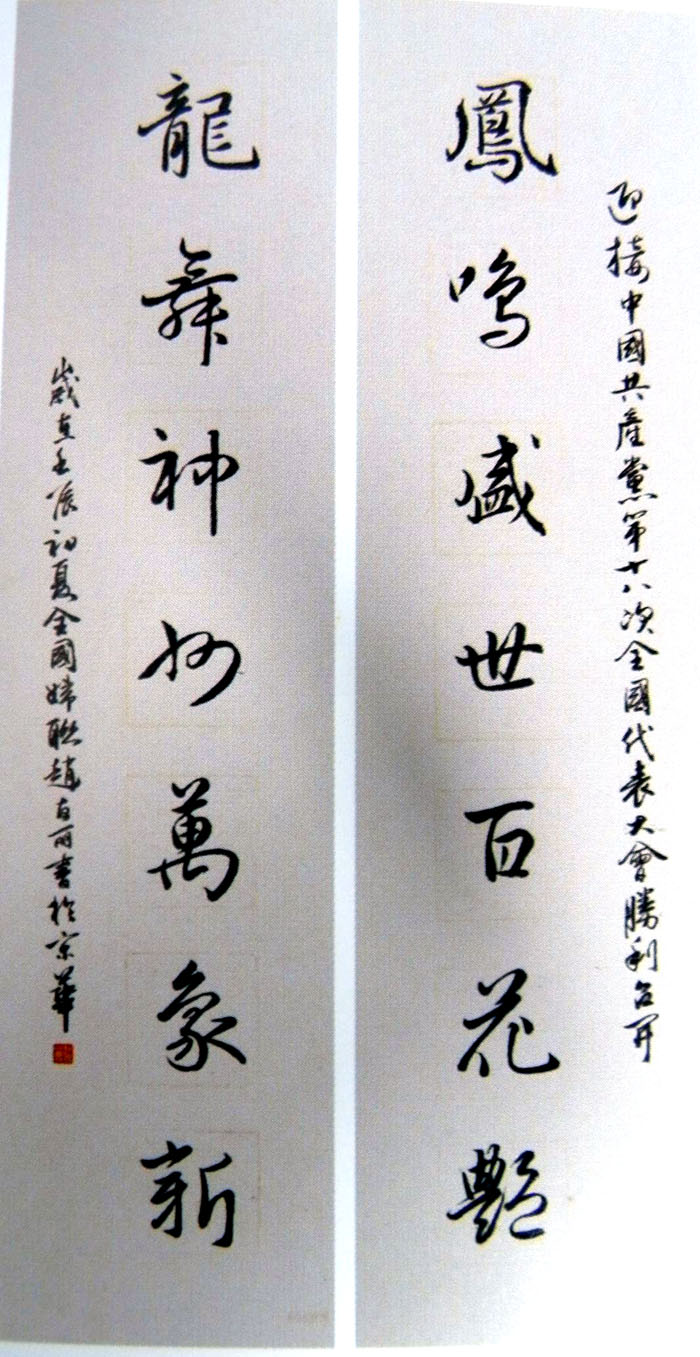 迎接中國共產黨第十八次全國代表大會勝利召開
鳳鳴盛世百花艷
龍舞神州萬象新
歲直壬辰初夏全國婦聯趙百丽書於京華